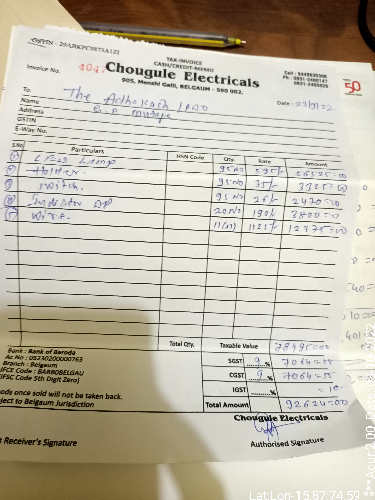 GSTIN - 29ABKPC9873A1ZI
TAX-INVOICE
CASH/CREDIT-MEMO
Invoice No. 404
Chougule Electricals
903, Menshi Galli, BELGAUM - 590 002.
Cell : 9448635306
Ph : 0831-2400147
50
To,
The
Name
Date : 23/3/22
Address
GSTIN
E-Way No.
S.No Particulars HSN Code Qty Rate Amount
① Lamp 95 No 595/- 56525=00
② Holder. 95 No 35/- 3325=00
③ Switch. 95 No 26/- 2470=00
④ Indicator 20 No 190/- 3800=00
⑤ Wire. 11(N) 1125/- 12375=00
Total Qty. Taxable Value 78495=00
Bank : Bank of Baroda
Ac No : 05230200000763
Branch : Belgaum
IFCE Code : BARB0BELGAU
(IFSC Code 5th Digit Zero)
SGST 9 % 7064=55
CGST 9 % 7064=55
IGST % =10
Total Amount 92624=00
oods once sold will not be taken back.
ject to Belgaum Jurisdiction
Chougule Electricals
Receiver's Signature
Authorised Signature
Lat,Lon-15.87:74.59